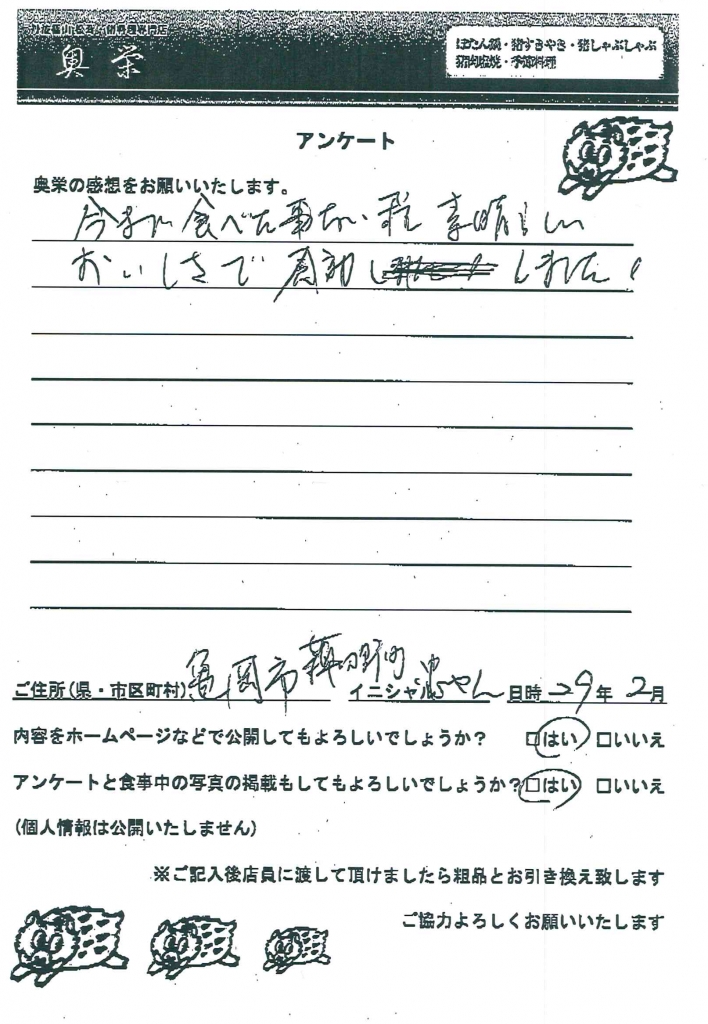 奥栄
ぼたん鍋・猪すきやき・猪しゃぶしゃぶ
猪肉塩焼・季節料理
アンケート
奥栄の感想をお願いいたします。
今まで食べた事ない程素晴らしい
おいしさで感動し しました!
ご住所(県・市区町村) 亀岡市 イニシャル ちゃん 日時 29年 2月
内容をホームページなどで公開してもよろしいでしょうか? □はい □いいえ
アンケートと食事中の写真の掲載もしてもよろしいでしょうか? □はい □いいえ
(個人情報は公開いたしません)
※ご記入後店員に渡して頂けましたら粗品とお引き換え致します
ご協力よろしくお願いいたします